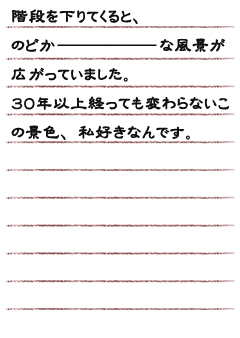 階段を下りてくると、
のどか――――な風景が
広がっていました。
30年以上経っても変わらないこ
の景色、私好きなんです。